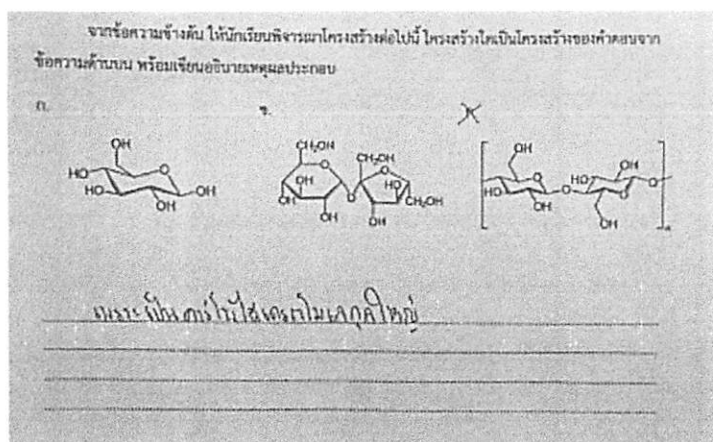 จากข้อความข้างต้น ให้นักเรียนพิจารณาโครงสร้างต่อไปนี้ โครงสร้างใดเป็นโครงสร้างของคำตอบจาก
ข้อความด้านบน พร้อมเขียนอธิบายเหตุผลประกอบ
ก. ข.
OH
HO
HO
O
OH
OH
CH₂OH
O
OH
OH
OH
O
CH₂OH
O
HO
CH₂OH
OH
OH
HO
O
OH
O
HO
OH
O
OH
O
n
เพราะเป็นคาร์โบไฮเดรตโมเลกุลใหญ่